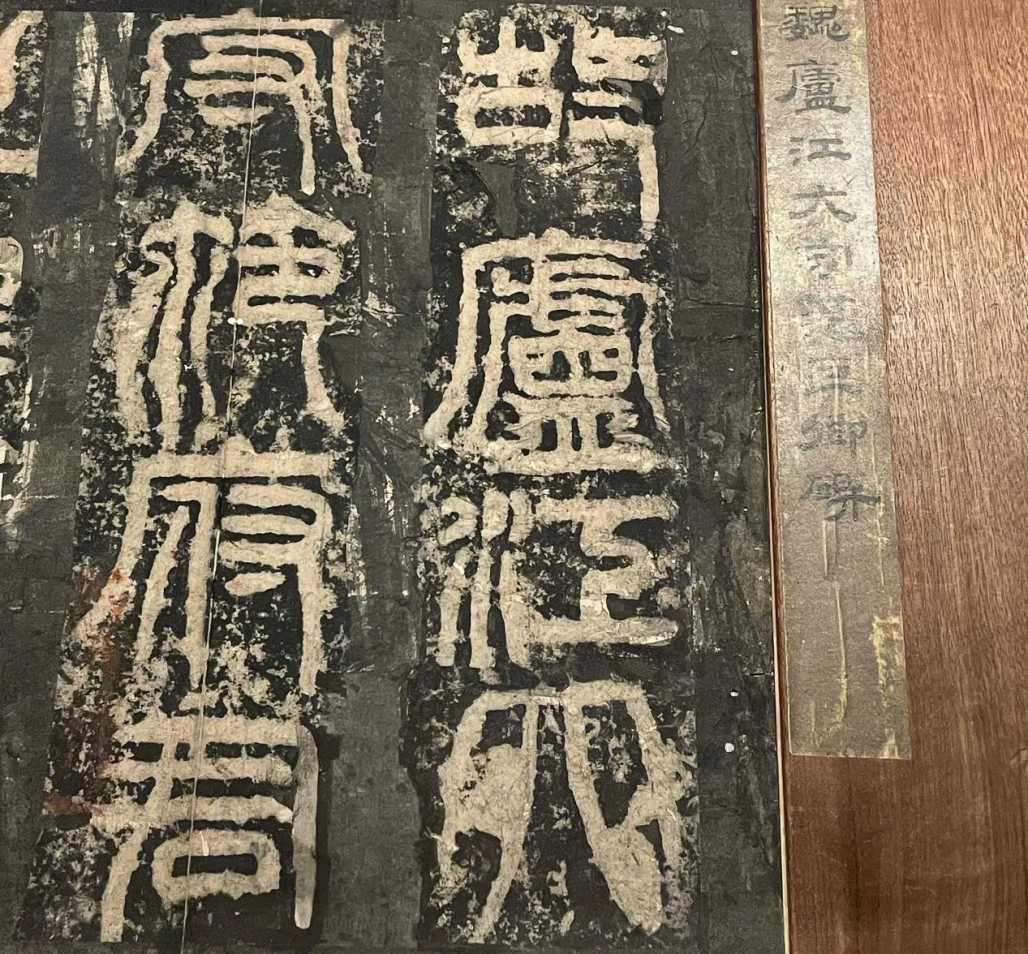 魏廬江太守范巨卿碑
故廬江太
守范府君